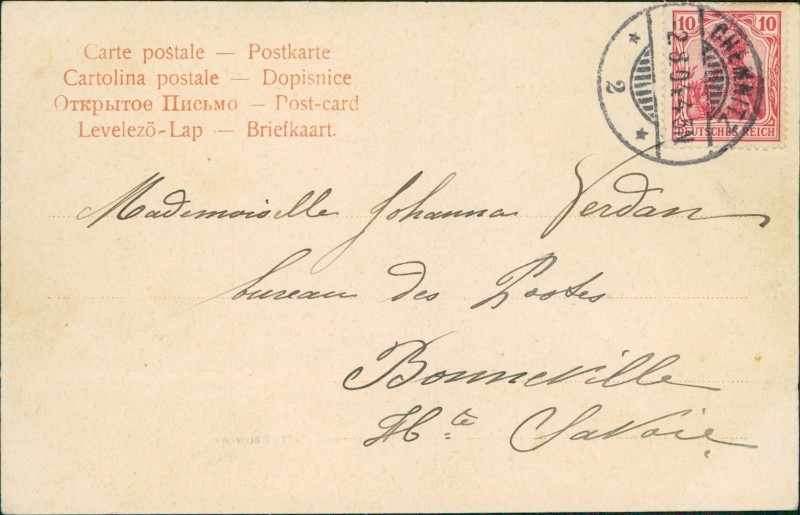 Carte postale — Postkarte
Cartolina postale — Dopisnice
Открытое Письмо — Post-card
Levelező-Lap — Briefkaart.
10 10
DEUTSCHES REICH
CHEMNITZ
2
Mademoiselle Johanna Verdan
bureau des Postes
Bonneville
Hte Savoie